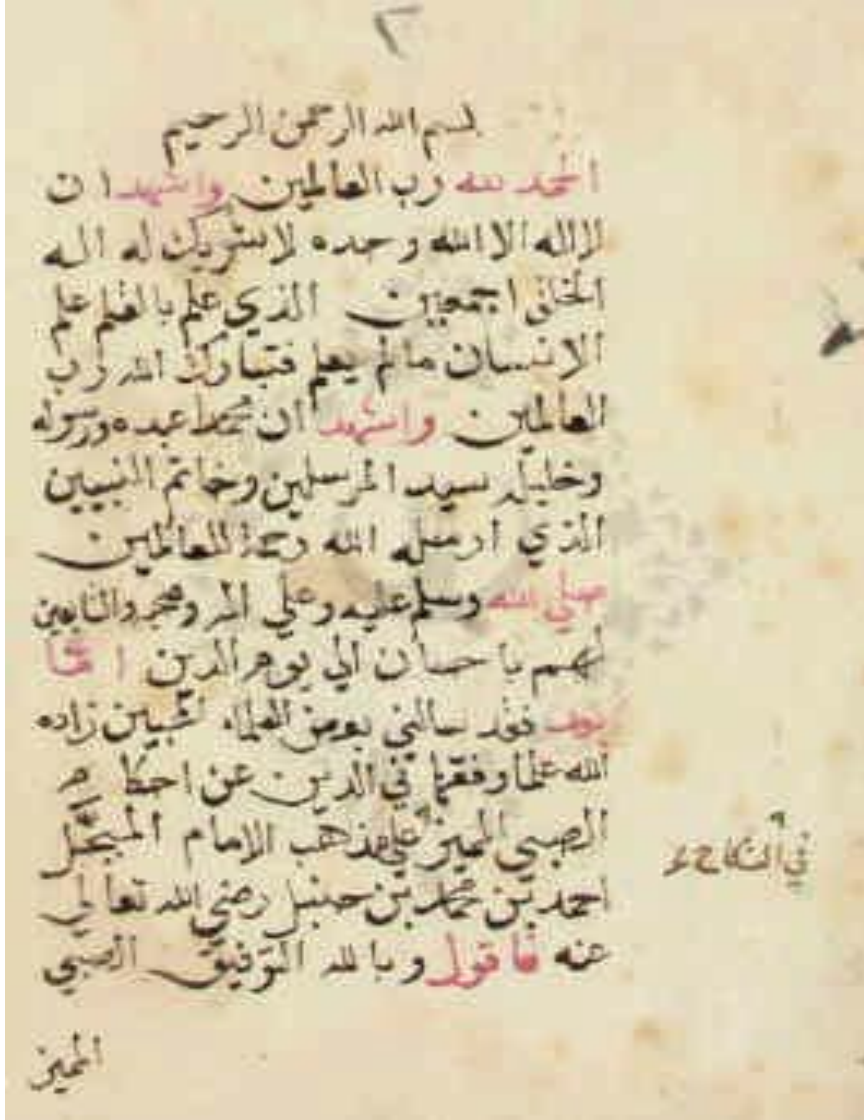 ٢
بسم الله الرحمن الرحيم
الحمد لله رب العالمين واشهد ان
لا اله الا الله وحده لا شريك له اله
الخلق اجمعين الذي علم بالقلم علم
الانسان مالم يعلم فتبارك الله رب
العالمين واشهد ان محمدا عبده ورسوله
وخليله سيد المرسلين وخاتم النبيين
الذي ارسله الله رحمة للعالمين
صلي الله وسلم عليه وعلي اله وصحبه والتابعين
لهم باحسان الي يوم الدين اما
بعد فقد سالني بعض العلماء زاده
الله علما وفقها في الدين عن احكام
الصبي المميز علي مذهب الامام المبجل
في النكاح
احمد بن محمد بن حنبل رضي الله تعالي
عنه فاقول وبالله التوفيق الصبي
المميز